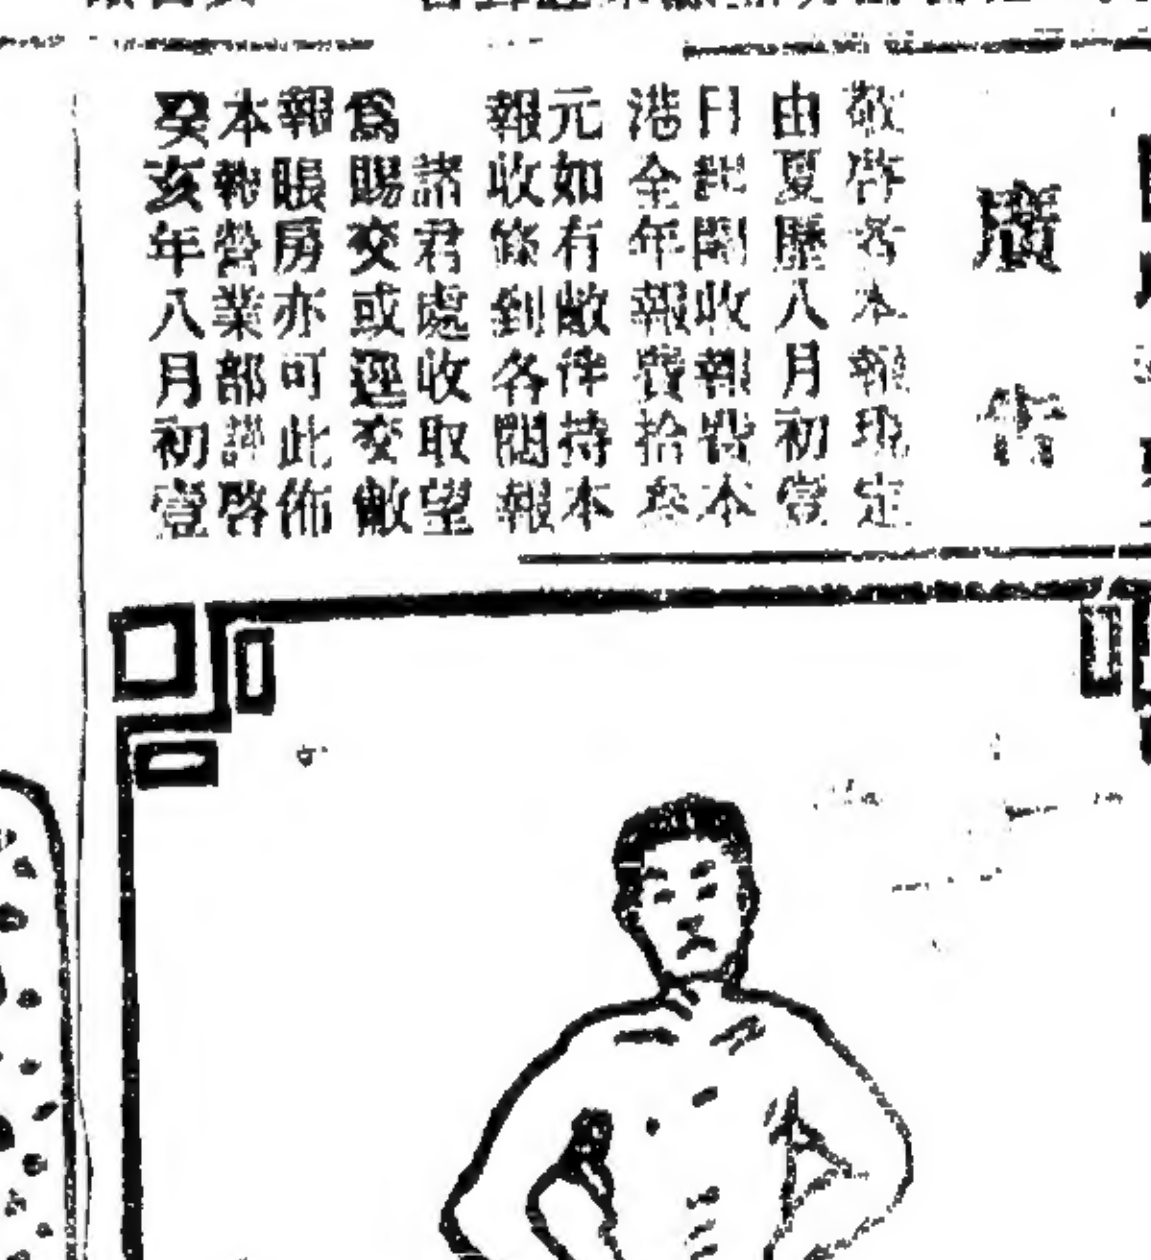 廣告
敬啓者本報現定
由夏歷八月初壹
日起開收報費本
港全年報費拾叁
元如有敝伴持本
報收條到各閱報
諸君處收取望
爲賜交或逕交敝
報賬房亦可此佈
本報營業部謹啓
癸亥年八月初壹